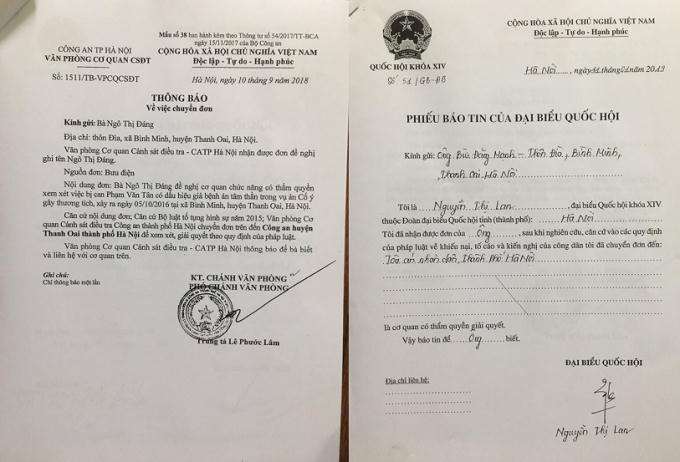 Mẫu số 38 ban hành kèm theo Thông tư số 54/2017/TT-BCA
ngày 15/11/2017 của Bộ Công an
CÔNG AN TP HÀ NỘI
VĂN PHÒNG CƠ QUAN CSĐT
CỘNG HÒA XÃ HỘI CHỦ NGHĨA VIỆT NAM
Độc lập - Tự do - Hạnh phúc
Số: 1511/TB-VPCQCSĐT
Hà Nội, ngày 10 tháng 9 năm 2018
THÔNG BÁO
Về việc chuyển đơn
Kính gửi: Bà Ngô Thị Đáng
Địa chỉ: thôn Địa, xã Bình Minh, huyện Thanh Oai, Hà Nội.
Văn phòng Cơ quan Cảnh sát điều tra - CATP Hà Nội nhận được đơn đề nghị
ghi tên Ngô Thị Đáng.
Nguồn đơn: Bưu điện
Nội dung đơn: Bà Ngô Thị Đáng đề nghị cơ quan chức năng có thẩm quyền
xem xét việc bị can Phạm Văn Tân có dấu hiệu giả bệnh án tâm thần trong vụ án Cố ý
gây thương tích, xảy ra ngày 05/10/2016 tại xã Bình Minh, huyện Thanh Oai, Hà Nội.
Căn cứ nội dung đơn; Căn cứ Bộ luật tố tụng hình sự năm 2015; Văn phòng Cơ
quan Cảnh sát điều tra Công an thành phố Hà Nội chuyển đơn trên đến Công an huyện
Thanh Oai thành phố Hà Nội để xem xét, giải quyết theo quy định của pháp luật.
Văn phòng Cơ quan Cảnh sát điều tra - CATP Hà Nội thông báo để bà biết
và liên hệ với cơ quan trên.
Ghi chú:
Chỉ thông báo một lần
KT. CHÁNH VĂN PHÒNG
PHÓ CHÁNH VĂN PHÒNG
Trung tá Lê Phước Lâm
QUỐC HỘI KHÓA XIV
CỘNG HÒA XÃ HỘI CHỦ NGHĨA VIỆT NAM
Độc lập - Tự do - Hạnh phúc
Số 51/GB-ĐB
Hà Nội, ngày 11 tháng 01 năm 2019
PHIẾU BÁO TIN CỦA ĐẠI BIỂU QUỐC HỘI
Kính gửi: Ông Bùi Đăng Mạnh - Thôn Địa, Bình Minh,
Thanh Oai, Hà Nội
Tôi là Nguyễn Thị Lan, đại biểu Quốc hội khóa XIV
thuộc Đoàn đại biểu Quốc hội tỉnh (thành phố): Hà Nội
Tôi đã nhận được đơn của Ông, sau khi nghiên cứu, căn cứ vào các quy định
của pháp luật về khiếu nại, tố cáo và kiến nghị của công dân tôi đã chuyển đơn đến:
Tòa án nhân dân, Thành phố Hà Nội
là cơ quan có thẩm quyền giải quyết.
Vậy báo tin để Ông biết.
ĐẠI BIỂU QUỐC HỘI
Địa chỉ liên hệ:
Nguyễn Thị Lan